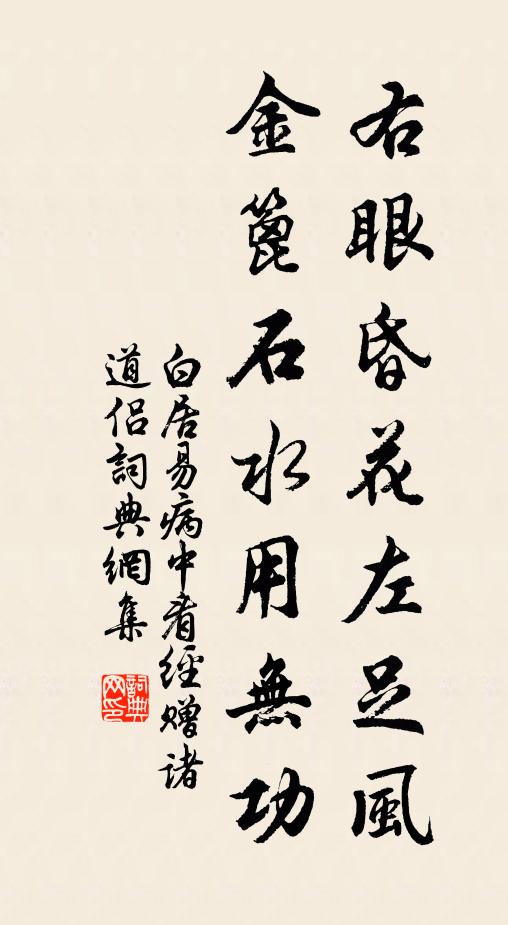 右眼昏花左足風
金篦石水用無功
白居易病中看經贈諸
道侶詞典網集
詞典
网印